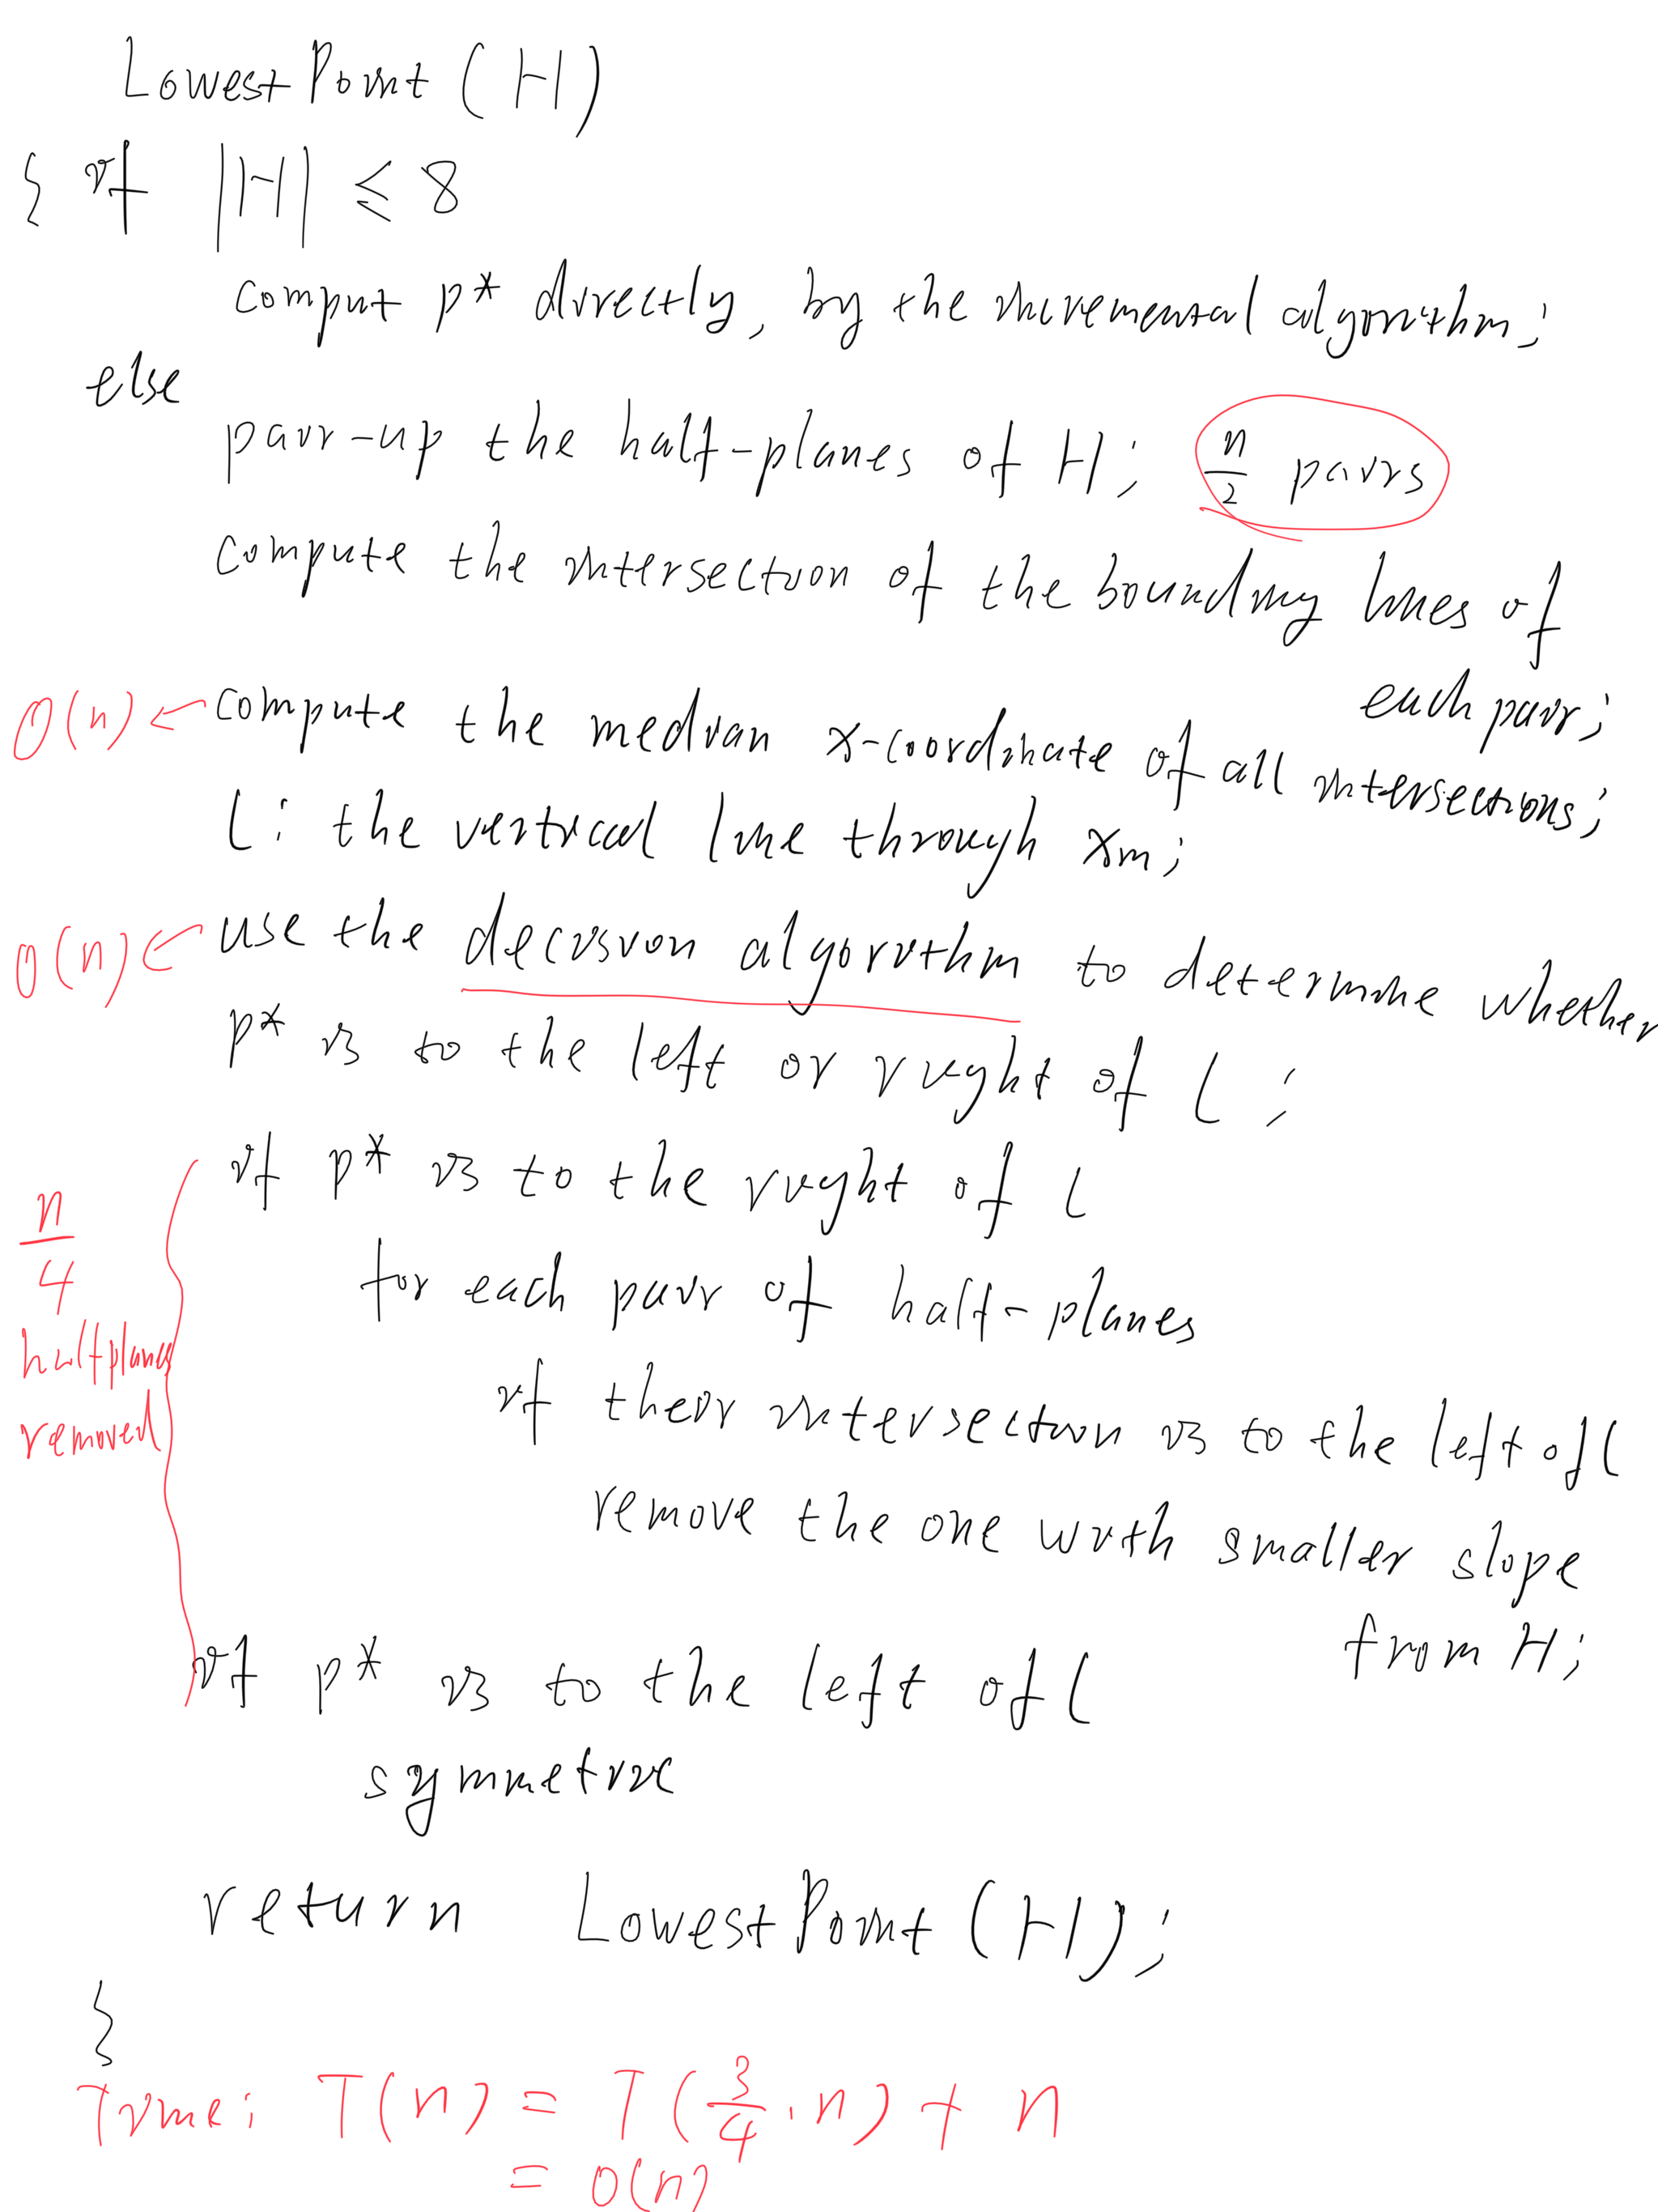 LowestPoint (H)
{ if |H| ≤ 8
comput p* directly, by the incremental algorithm;
else
pair-up the half-planes of H; n/2 pairs
compute the intersection of the bounding lines of
each pair;
O(n) ← compute the median x-coordinate of all intersections;
l: the vertical line through xm;
O(n) ← use the decision algorithm to determine whether
p* is to the left or right of l;
if p* is to the right of l
n/4
for each pair of half-planes
halfplanes
if their intersection is to the left of l
removed
remove the one with smaller slope
from H;
if p* is to the left of l
symmetric
return LowestPoint (H);
}
Time: T(n) = T(3/4 · n) + n
= O(n)